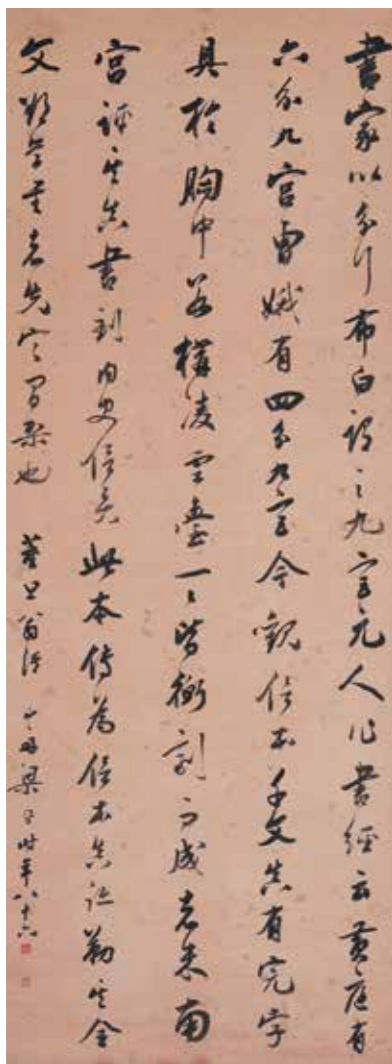 書家以分行布白謂之九宮元人作書經云黃庭有
六分九宮曹娥有四分九宮今觀信本千文真有完字
具於胸中若構淩雲臺一〻皆衡劑而成者米南
宮評其真書到內史信矣此本傳為信本真跡勒其全
文欲學書者先定間架也 董思翁語 山舟梁同書時年八十六